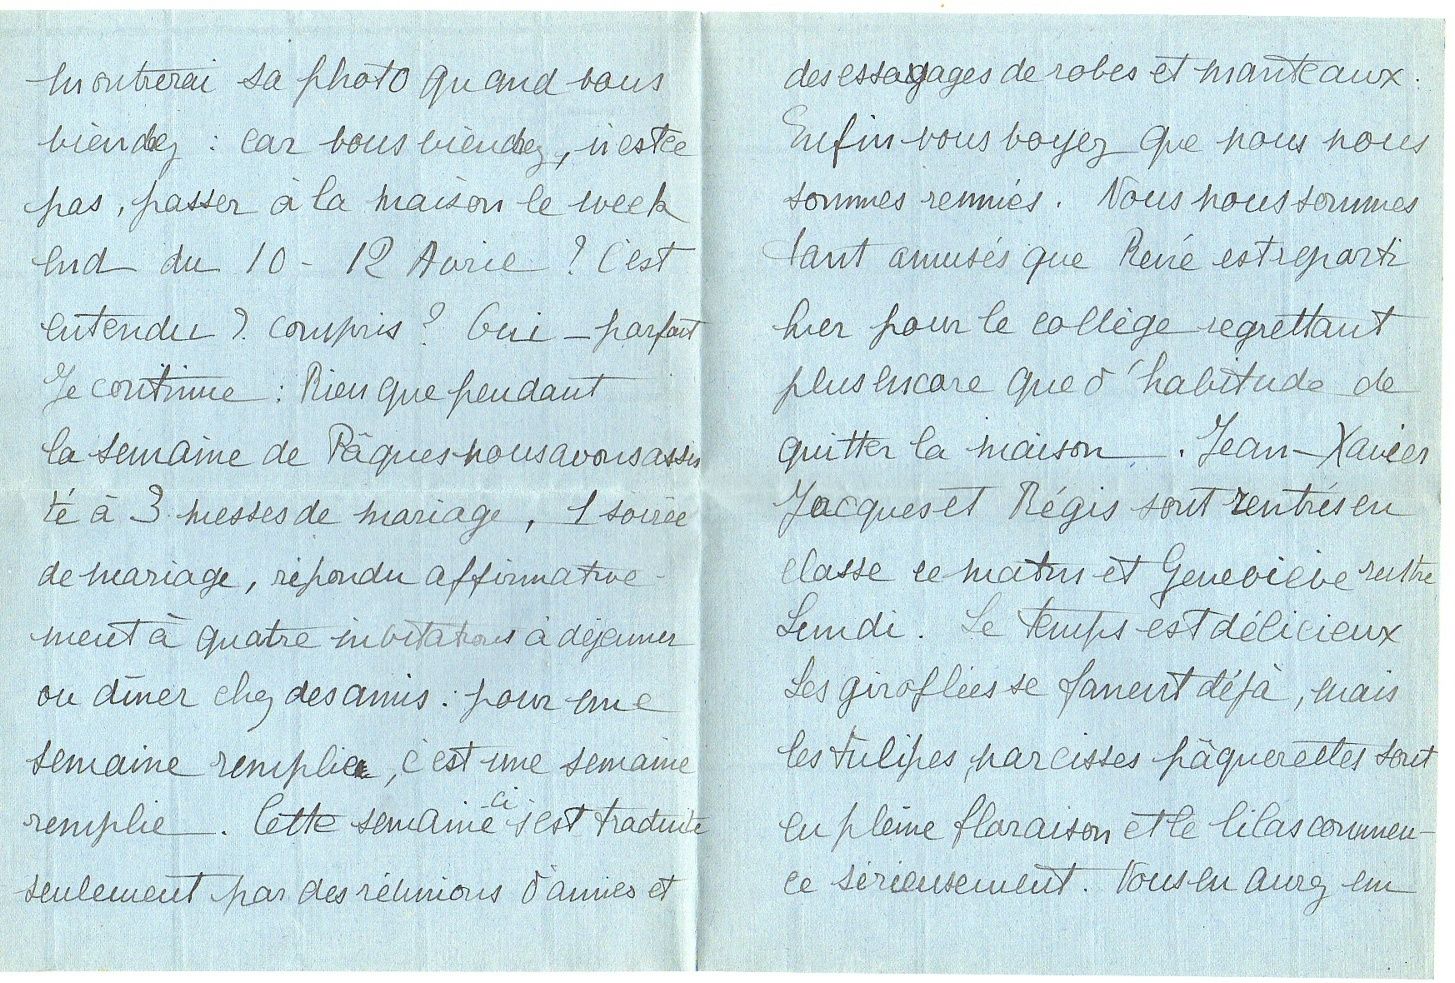 montrerai sa photo quand vous
viendrez : car vous viendrez, n'est ce
pas, passer à la maison le week
end du 10 - 12 Avril ? C'est
entendu ? compris ? Oui - parfait
Je continue : Rien que pendant
la semaine de Pâques nous avons assis
té à 3 messes de mariage, 1 soirée
de mariage, répondu affirmative-
ment à quatre invitations à déjeuner
ou dîner chez des amis : pour une
semaine remplie, c'est une semaine
remplie. Cette semaine-ci s'est traduite
seulement par des réunions d'amies et
des essayages de robes et manteaux.
Enfin vous voyez que nous nous
sommes remués. Nous nous sommes
tant amusés que René est reparti
hier pour le collège regrettant
plus encore que d'habitude de
quitter la maison. Jean-Xavier
Jacques et Régis sont rentrés en
classe ce matin et Geneviève rentre
Lundi. Le temps est délicieux
Les giroflées se fanent déjà, mais
les tulipes, narcisses pâquerettes sont
en pleine floraison et le lilas commen-
ce sérieusement. Vous en aurez un